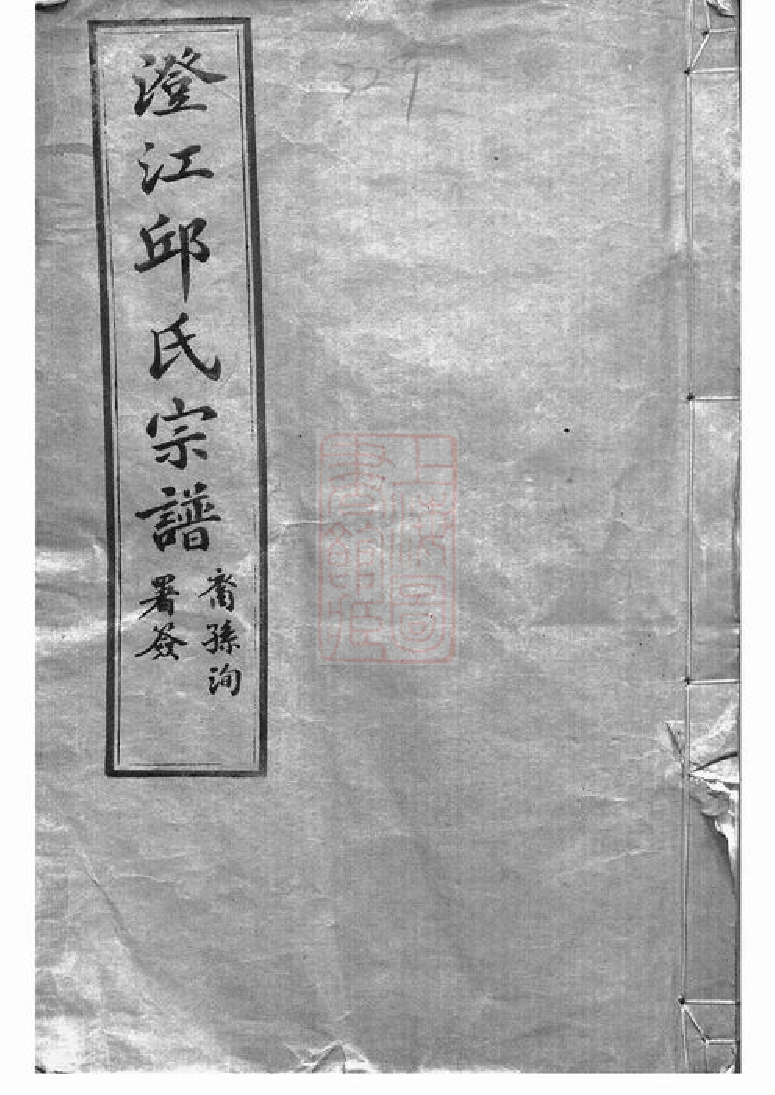 澄江邱氏宗譜
裔孫洵
署簽
327
上海圖
書館藏